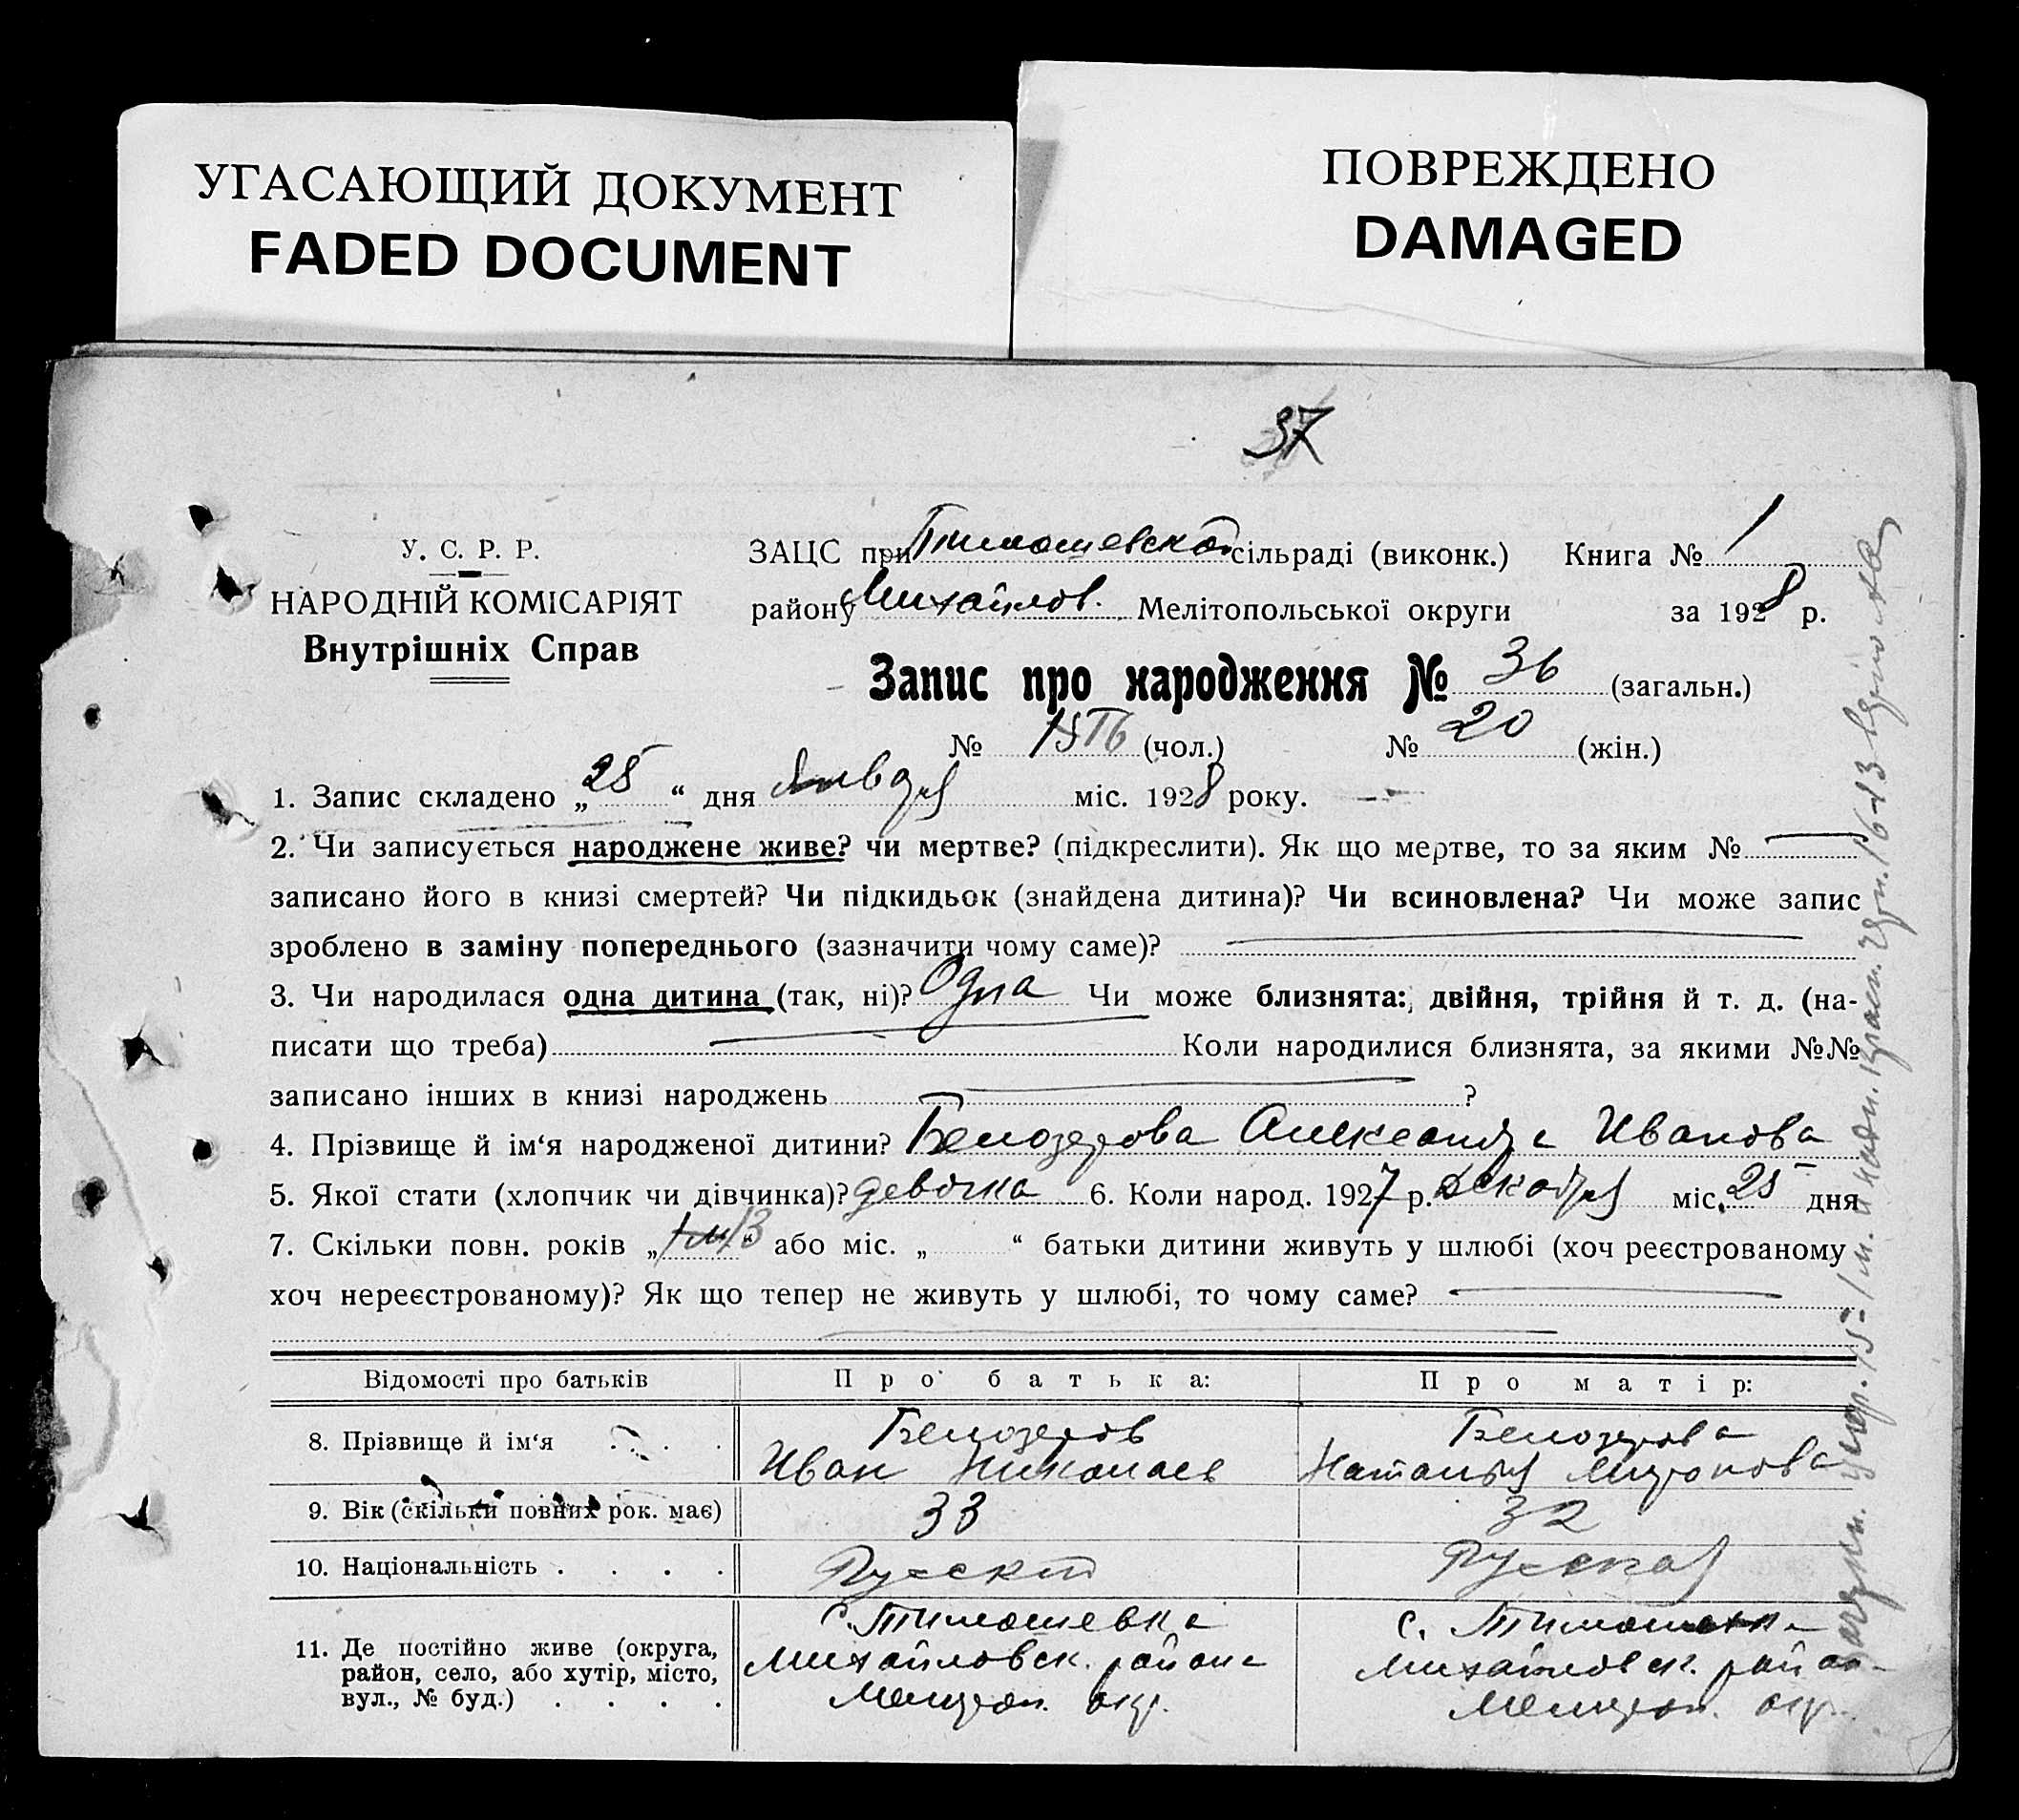 УГАСАЮЩИЙ ДОКУМЕНТ
FADED DOCUMENT
ПОВРЕЖДЕНО
DAMAGED
37
У. С. Р. Р.
НАРОДНІЙ КОМІСАРІЯТ
Внутрішніх Справ
ЗАЦС при Тимошевской сільраді (виконк.) Книга № 1
району Михайлов. Мелітопольської округи за 1928 р.
Запис про народження № 36 (загальн.)
№ 16 (чол.) № 20 (жін.)
1. Запис складено „25“ дня Января міс. 1928 року.
2. Чи записується народжене живе? чи мертве? (підкреслити). Як що мертве, то за яким №
записано його в книзі смертей? Чи підкидьок (знайдена дитина)? Чи всиновлена? Чи може запис
зроблено в заміну попереднього (зазначити чому саме)?
3. Чи народилася одна дитина (так, ні)? Одна Чи може близнята: двійня, трійня й т. д. (на-
писати що треба) Коли народилися близнята, за якими №№
записано інших в книзі народжень ?
4. Прізвище й ім‘я народженої дитини? Белозерова Александра Иванова
5. Якої стати (хлопчик чи дівчинка)? девочка 6. Коли народ. 1927 р. Декабря міс. 25 дня
7. Скільки повн. років „13“ або міс. „ “ батьки дитини живуть у шлюбі (хоч реєстрованому
хоч нереєстрованому)? Як що тепер не живуть у шлюбі, то чому саме?
Відомості про батьків Про батька: Про матір:
8. Прізвище й ім‘я . . . Белозеров Белозерова
Иван Николаев Наталья Миронова
9. Вік (скільки повних рок. має) 33 32
10. Національність . . . . Русский Русская
11. Де постійно живе (округа, район, село, або хутір, місто, вул., № буд.) . . . .
с. Тимошевка
Михайловск. района
Мелитоп. окр.
с. Тимошевка
Михайловск. район
Мелитоп. окр.